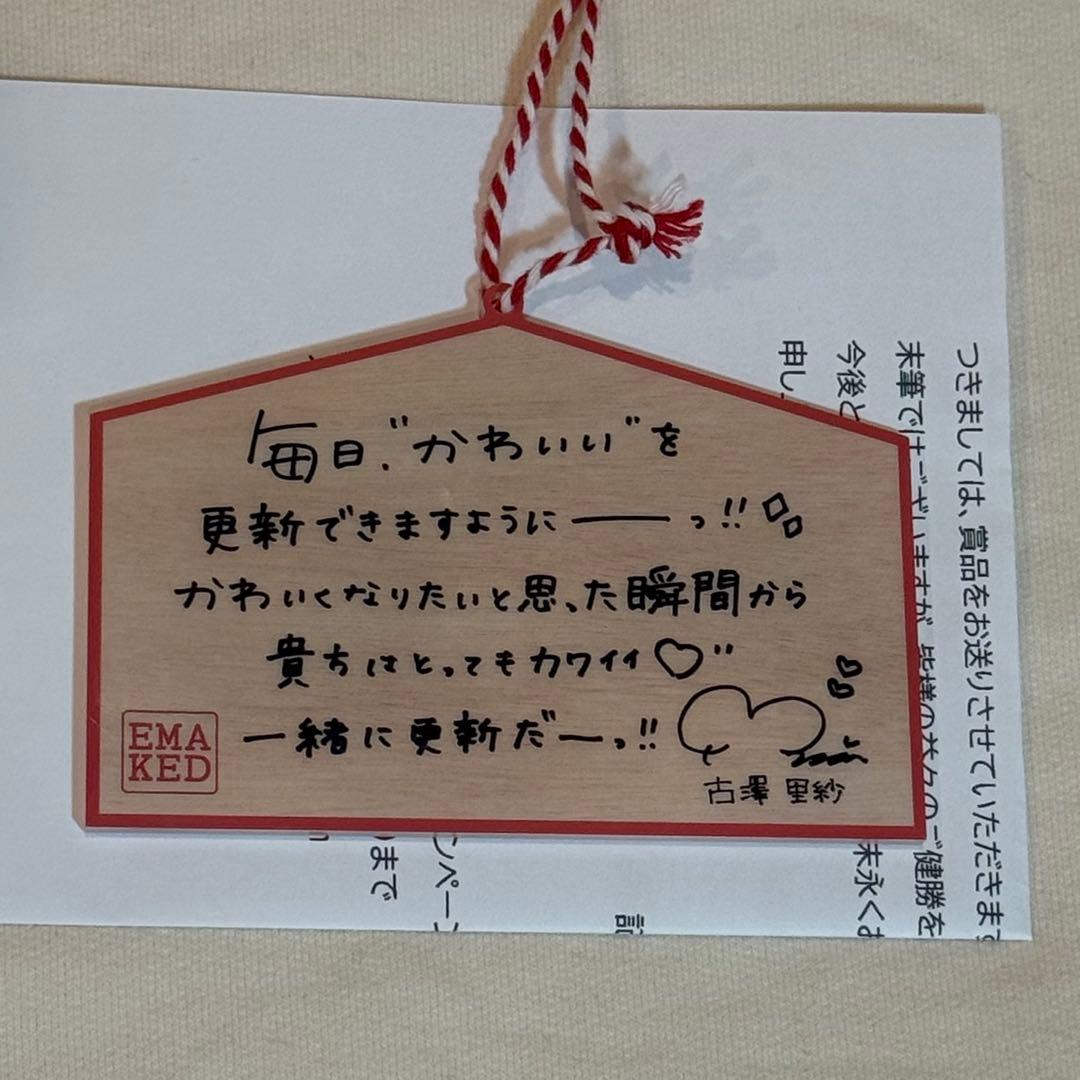 毎日、"かわいい"を
更新できますようにーーっ!!
かわいくなりたいと思った瞬間から
貴方はとってもカワイイ♡"
一緒に更新だーっ!!
古澤 里紗
EMA
KED
つきましては、賞品をお送りさせていただきます
末筆ではございますが、皆様の益々のご健勝を
今後と
末永くお
申し
記
ンペー
まで